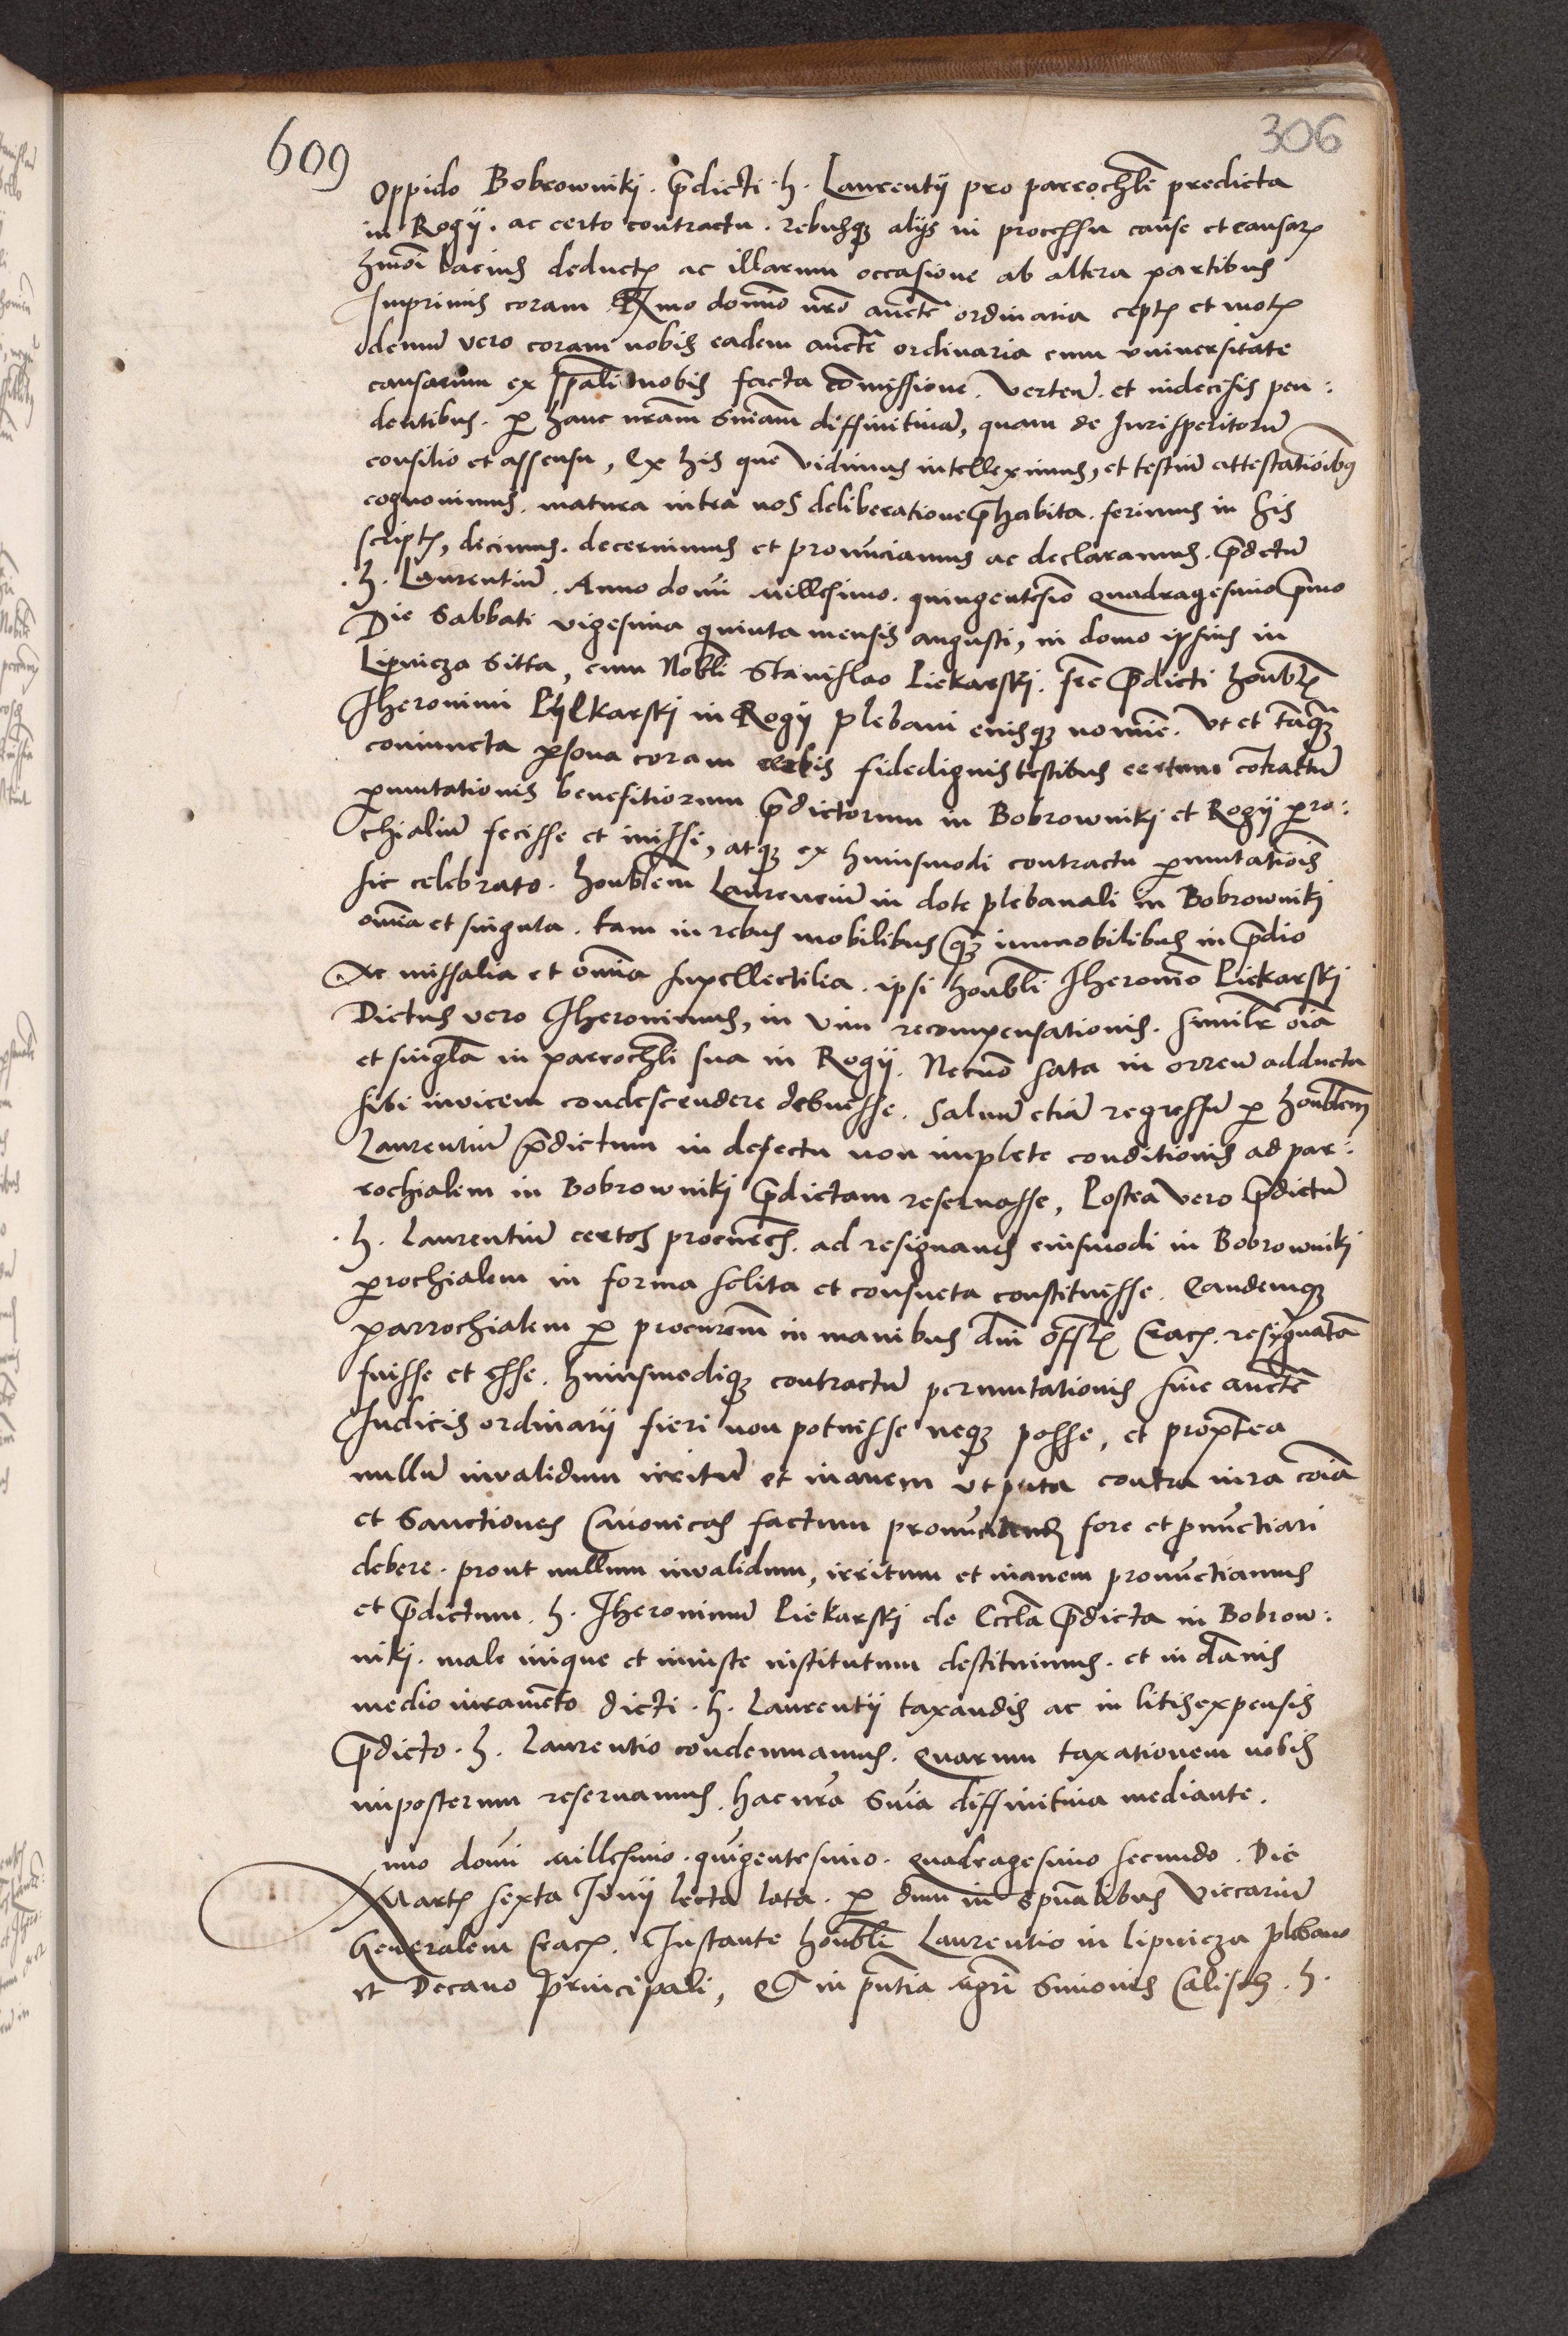 609
306
oppido Bobrowniki. p̄dicti. h. Laurentij pro parrochłi predicta
in Rogij. ac certo contractu. rebusq; alijs in processu cause et causarꝫ
hmōi lacius deductꝫ ac illarum occasione ab altera partibus
Imprimis coram Rmo domīo nrō auctē ordinaria ceptꝫ et motꝫ
demū vero coram nobis eadem auctē ordinaria cum vniuersitate
causarum ex sp̄ali nobis facta comissione. verten̄. et indecisis pen:
dentibus. ꝑ hanc nrām sniām diffinitiuā, quam de Iurisperitorū
consilio et assensu, Ex his que vidimus intelleximus, et testiū attestatiōibꝯ
cognouimus. matura intra nos deliberatione p̄habita. ferimus in his
scriptꝫ, dicimus. decernimus et pronūciamus ac declaramus. p̄dictū
. h. Laurentiū. Anno domī millesimo. quingentesīo quadragesimo p̄mo
Die Sabbati vigesima quinta mensis augusti, in domo ipsius in
Lipnicza sitta, cum Nobłi Stanislao Piekarski. frē p̄dicti honōbłꝫ
Iheronimi Pyekarski in Rogij plebani eiusq; nomīe. Vt et tāqꝫ
coniuncta ꝑsona coram certis fidedignis testibus certum cōtractū
ꝑmutationis benefitiorum p̄dictorum in Bobrowniki et Rogij ꝑro:
chialiū fecisse et inisse, atq; ex huiusmodi contractu ꝑmutatiōis
sic celebrato. honōbłem Laurentiū in dote plebanali in Bobrowniki
omīa et singula. tam in rebus mobilibus q̄ꝫ immobilibus in p̄dio
Ac missalia et omīa supellectilia. ipsi honōbłi Iheronīo Piekarski
Dictus vero Iheronimus, in vim recompensationis. similr̄ oīa
et singłā in parrochłi sua in Rogij. Necnō sata in orreū adducta
sibi inuicem condescendere debuisse. Saluū etiā regressū ꝑ honōbłem
Laurentiū p̄dictum in defectu non implete conditionis ad par:
rochialem in Bobrowniki p̄dictam reseruasse, Postea vero p̄dictū
. h. Laurentiū certos procur̄es. ad resignan̄ eiusmodi in Bobrowniki
ꝑrochialem in forma solita et consueta constituisse. Eandemq;
parrochialem ꝑ procur̄em in manibus dnī offłꝫ Cracꝫ. resignatā
fuisse et esse. huiusmodiq; contractū permutationis sine auctē
Iudicis ordinarij fieri non potuisse neq; posse, et propterea
nullū inualidum irritū et inanem vtputa contra iura coīa
et Sanctiones Canonicas factum pronūctiandꝫ fore et ꝓnūctiari
debere. prout nullum inualidum, irritum et inanem pronūctiamus
et p̄dictum. h. Iheronimū Piekarski de Eccłia p̄dicta in Bobrow:
niki. male inique et iniuste institutum destituimus. et in dānis
medio iuramēto dicti. h. Laurentij taxandis ac in litis expensis
p̄dicto. h. Laurentio condemnamus. quarum taxationem nobis
imposterum reseruamus. hac nrā Sniā diffinitiua mediante.
Anno domī millesimo. quigentesimo. quadragesimo secundo. Die
Martꝫ sexta Iunij lecta lata. ꝑ dnm in spūalibus Viccariū
Generalem Cracꝫ. Instante honōbłi Laurentio in Lipnicza plebano
et Decano Principali, Et in pn̄tia mgrī Simonis Calisch. h.